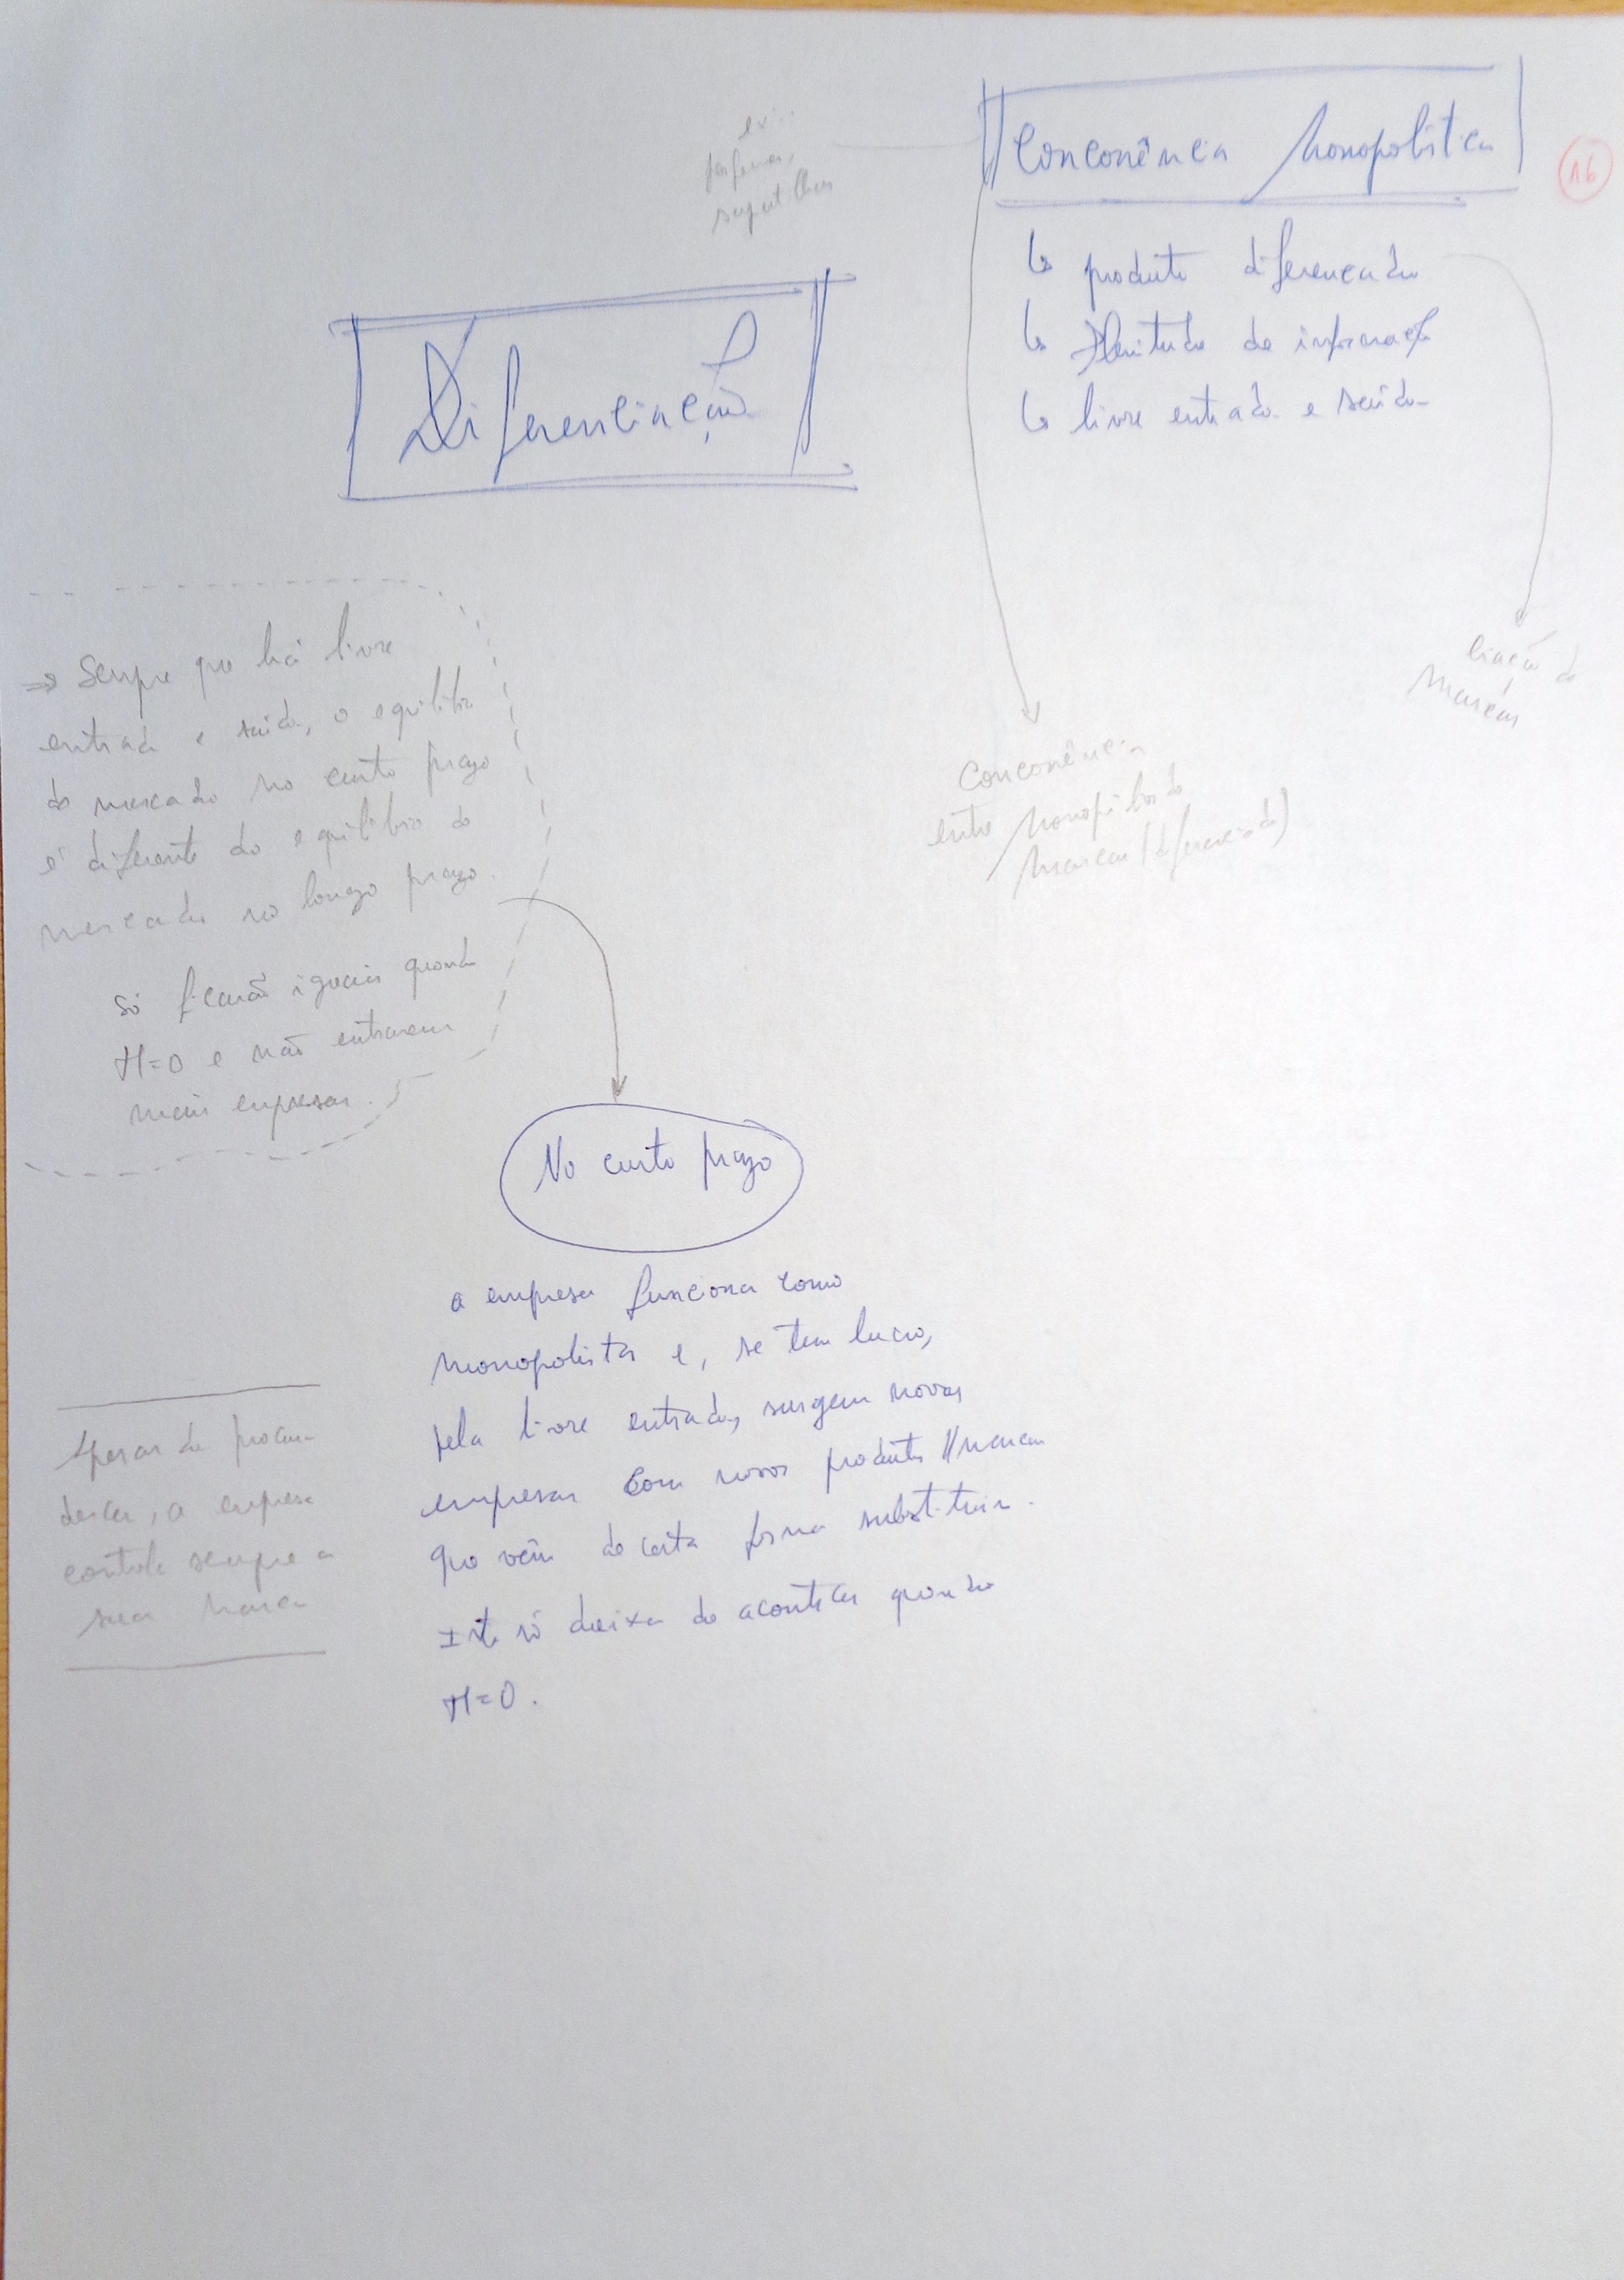 Concorrência Monopolista
16
ex.:
perfumes,
sapatilhas
↳ produto diferenciado
↳ Plenitude de informação
↳ livre entrada e saída
Diferenciação
criação de
marcas
Concorrência
entre monopólios de
marcas (diferenciado)
⇒ Sempre que há livre
entrada e saída, o equilíbrio
do mercado no curto prazo
é diferente do equilíbrio do
mercado no longo prazo.
só ficarão iguais quando
π=0 e não entrarem
mais empresas.
No curto prazo
a empresa funciona como
monopolista e, se tem lucro,
pela livre entrada, surgem novas
empresas com novos produtos // marcas
que vêm de certa forma substituir.
Isto só deixa de acontecer quando
π=0.
Apesar da procura
descer, a empresa
controla sempre a
sua marca